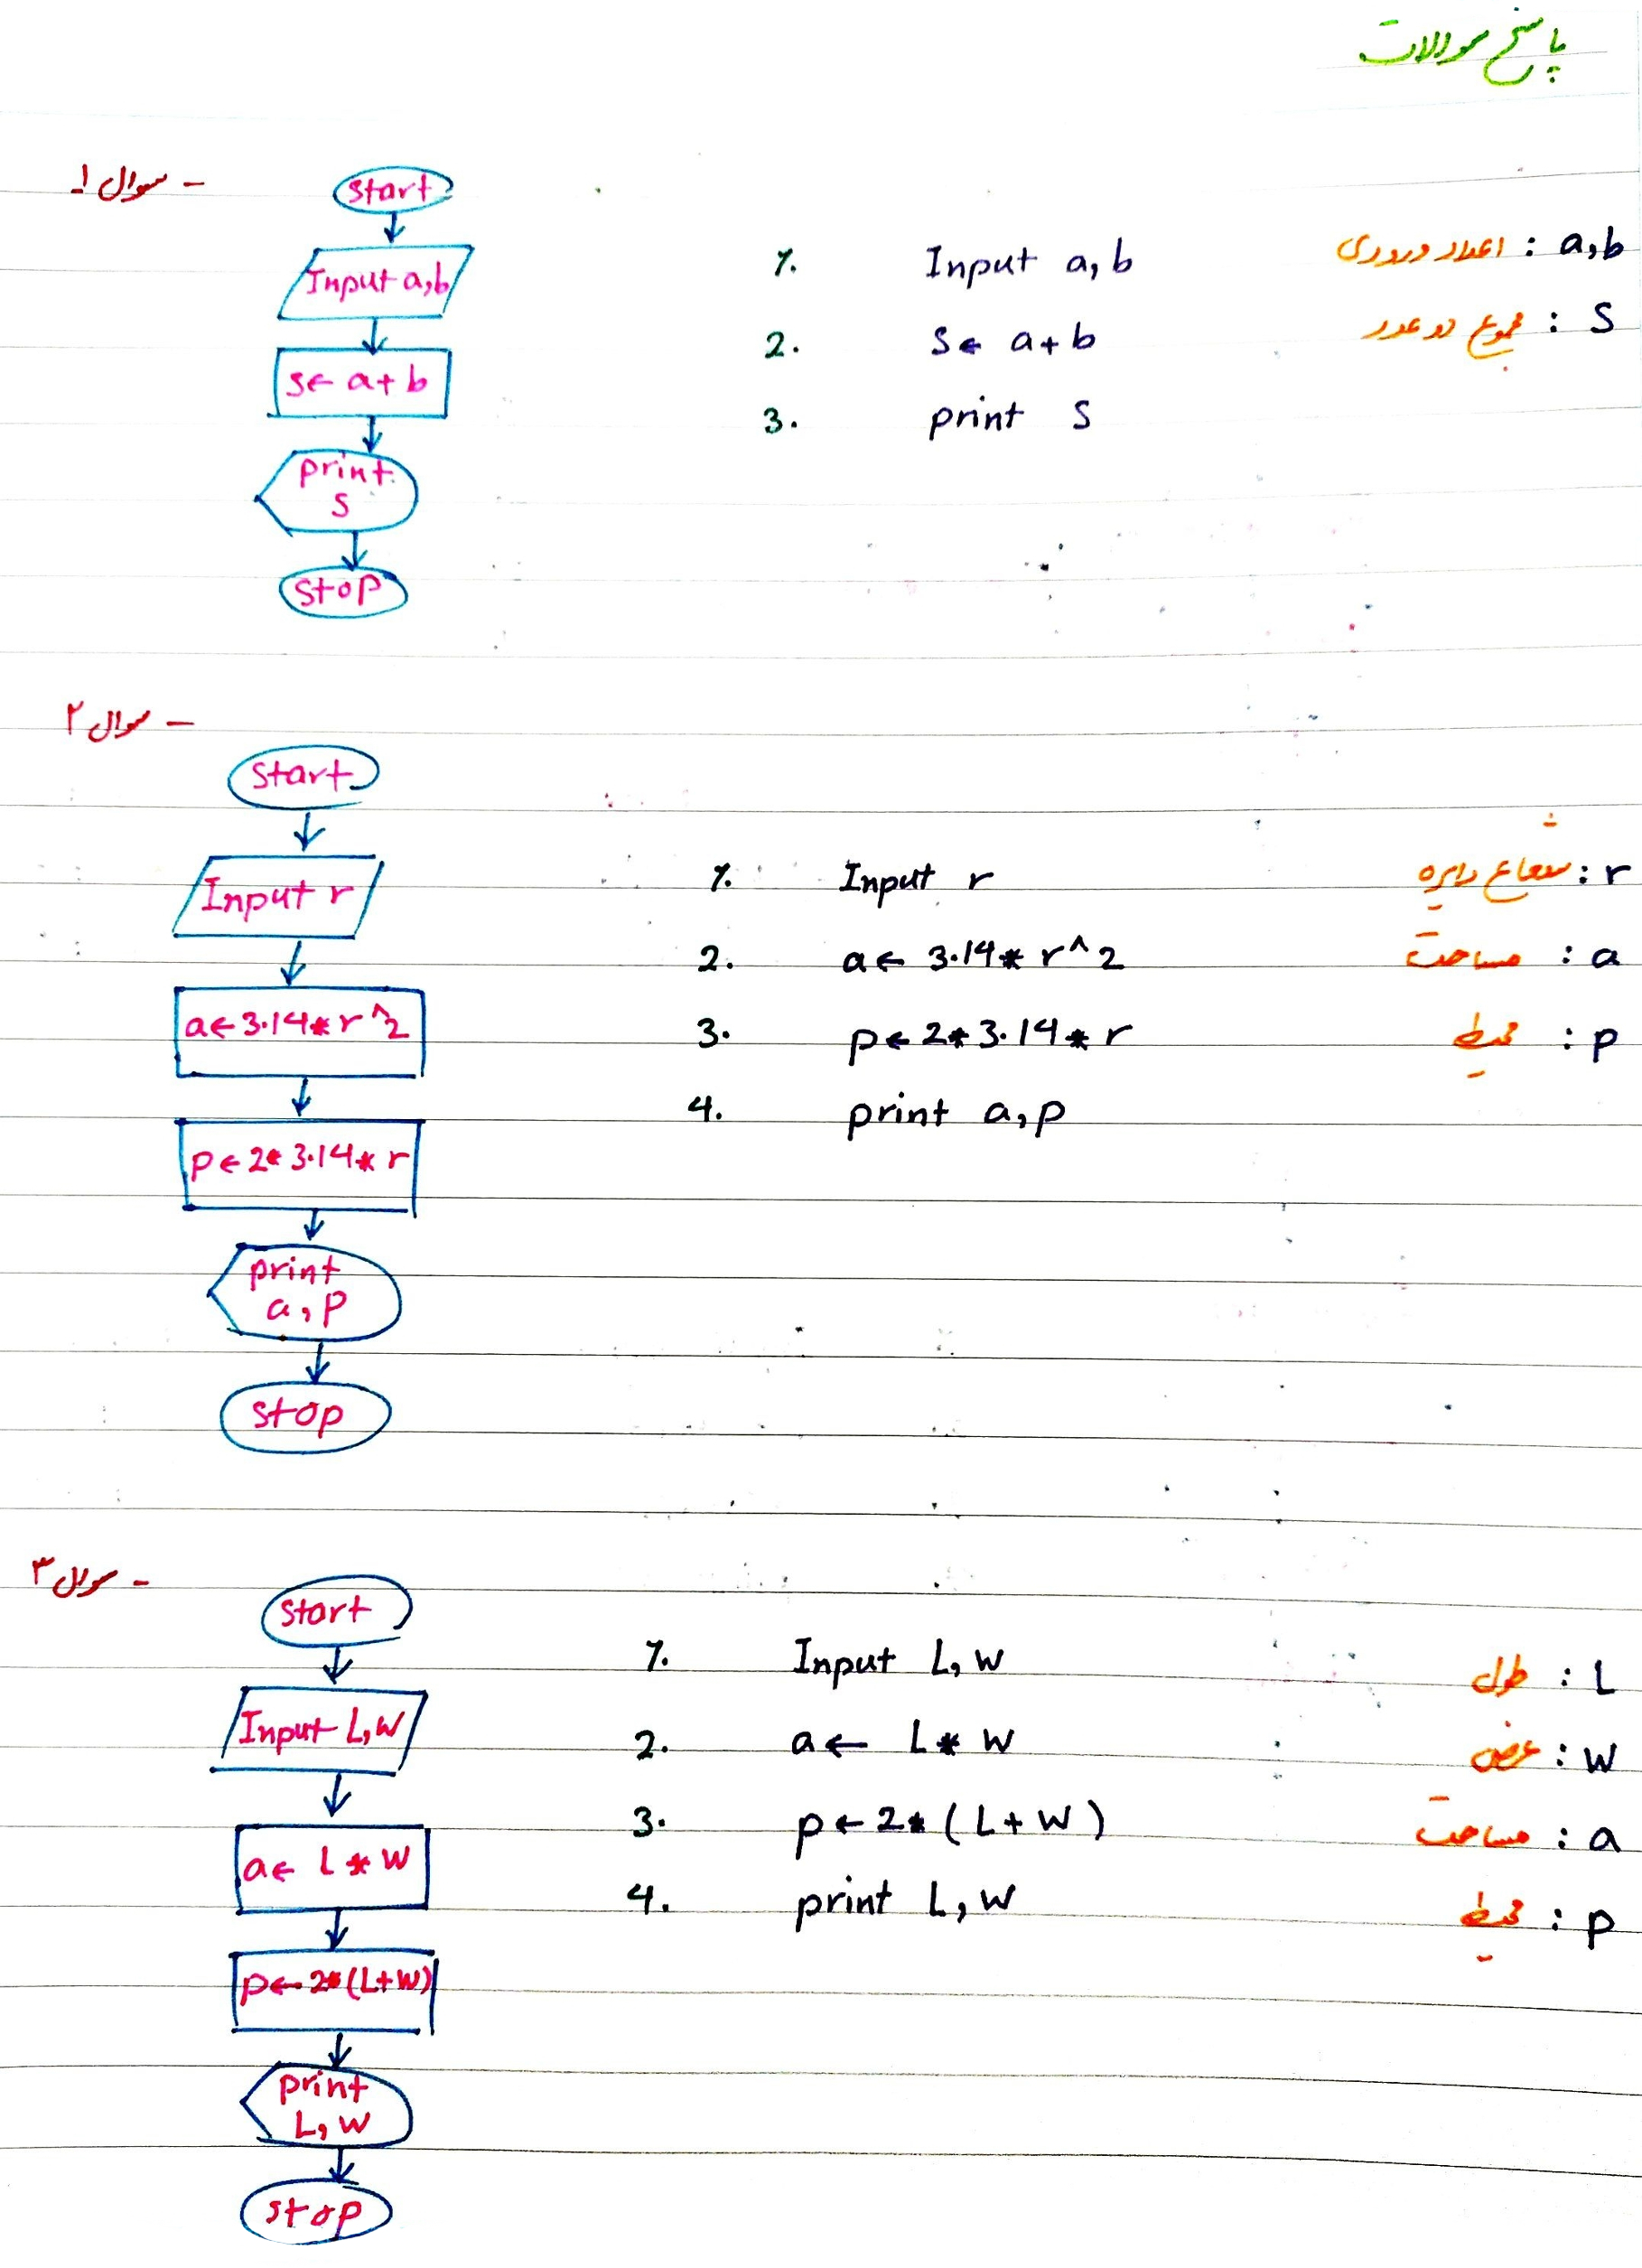 پاسخ سوالات
سوال ۱ -
start
Input a,b
s← a+b
print
s
stop
1. Input a,b
2. s← a+b
3. print s
a,b : اعداد ورودی
s : مجموع دو عدد
سوال ۲ -
start
Input r
a←3.14*r^2
p←2*3.14*r
print
a,p
stop
1. Input r
2. a← 3.14*r^2
3. p←2*3.14*r
4. print a,p
r : شعاع دایره
a : مساحت
p : محیط
سوال ۳ -
start
Input L,W
a← L*W
p←2*(L+W)
print
L,W
stop
1. Input L,W
2. a← L*W
3. p←2*(L+W)
4. print L,W
L : طول
W : عرض
a : مساحت
p : محیط